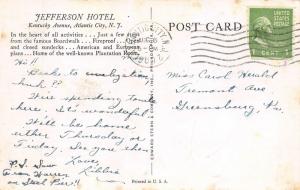 JEFFERSON HOTEL
Kentucky Avenue, Atlantic City, N. J.
In the heart of all activities . . . Just a few steps
from the famous Boardwalk . . . Fireproof . . . Open
and closed sundecks . . . American and European
plans . . . Home of the well-known Plantation Room.
POST CARD
1 CENT 1
Hi!!
Back to civilization,
huh??
Am spending today
here. It's wonderful.
Will be home
either Thursday or
Friday. See you then
Love,
Libbie
P.S. Saw
Fran Warren
on Steel Pier!!
Miss Carol
Tremont Ave
Greensburg, Pa.
Printed in U. S. A.